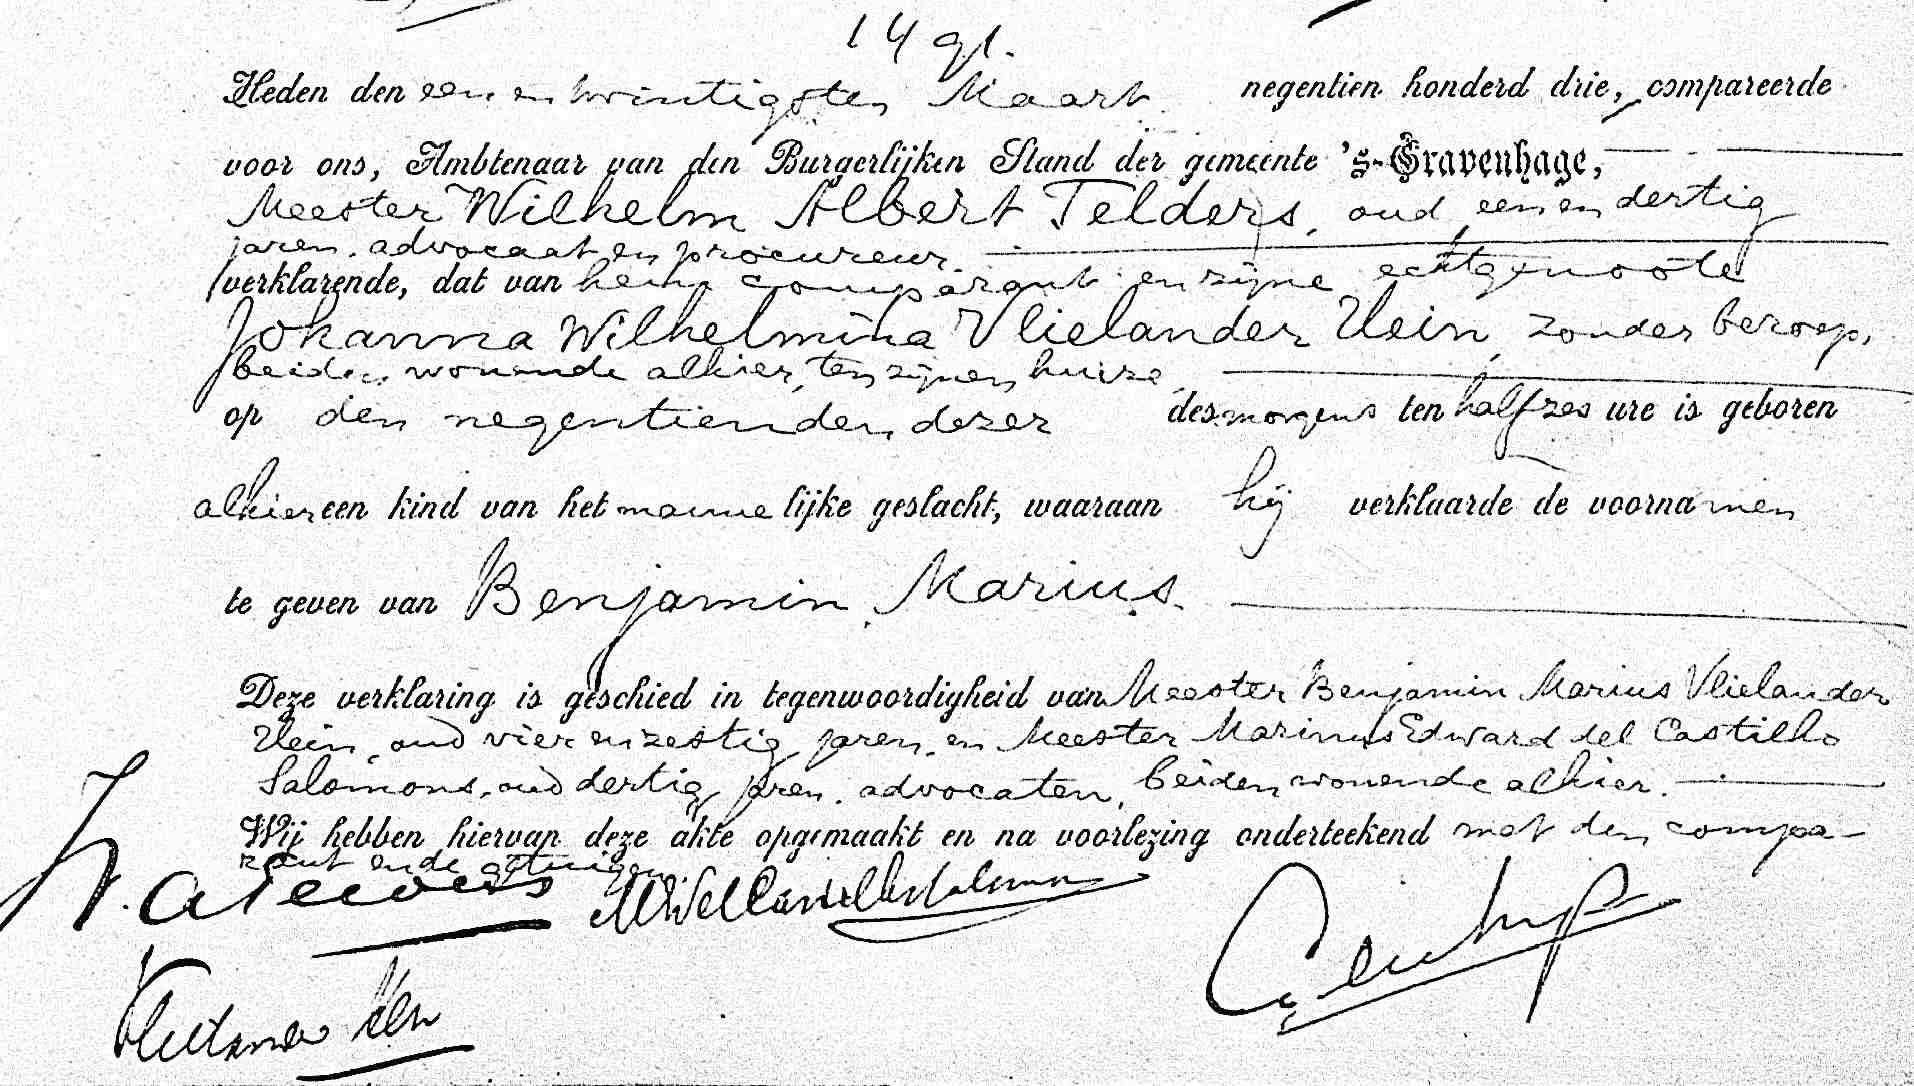 1491.
Heden den een en twintigsten Maart negentien honderd drie, compareerde
voor ons, Ambtenaar van den Burgerlijken Stand der gemeente 's-Gravenhage,
Meester Wilhelm Albert Telders, oud een en dertig
jaren, advocaat en procureur
verklarende, dat van hem comparant en zijne echtgenoote
Johanna Wilhelmina Vlielander Hein, zonder beroep,
beiden wonende alhier, ten zijnen huize,
op den negentienden dezer des morgens ten half zes ure is geboren
alhier een kind van het mannelijke geslacht, waaraan hij verklaarde de voornamen
te geven van Benjamin Marius.
Deze verklaring is geschied in tegenwoordigheid van Meester Benjamin Marius Vlielander
Hein, oud vier en zestig jaren, en Meester Marinus Edward del Castilho
Salomons, oud dertig jaren, advocaten, beiden wonende alhier.
Wij hebben hiervan deze akte opgemaakt en na voorlezing onderteekend met den compa-
rant en de getuigen.
W. A Telders
Vlielander Hein